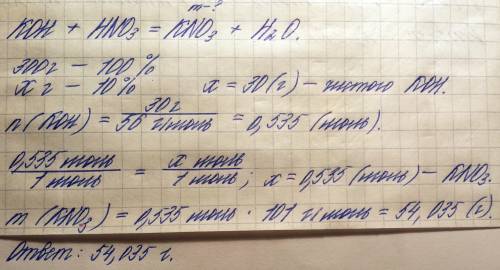 m-?
KOH + HNO₃ = KNO₃ + H₂O.
300г – 100 %
x г – 10 % x = 30 (г) – чистого KOH.
n (KOH) = 30 г / 56 г/моль = 0,535 (моль).
0,535 моль / 1 моль = x моль / 1 моль ; x = 0,535 (моль) – KNO₃.
m (KNO₃) = 0,535 моль · 101 г/моль = 54,035 (г).
Ответ: 54,035 г.